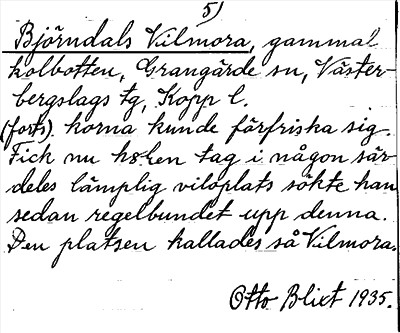 5)
Björndals Vilmora, gammal
kolbotten, Grangärde sn, Väster-
bergslags tg, Kopp l.
(forts) korna kunde färfriska sig.
Fick nu hären tag i någon sär-
deles lämplig viloplats sökte han
sedan regelbundet upp denna.
Den platsen kallades så Vilmora.
Otto Blixt 1935.